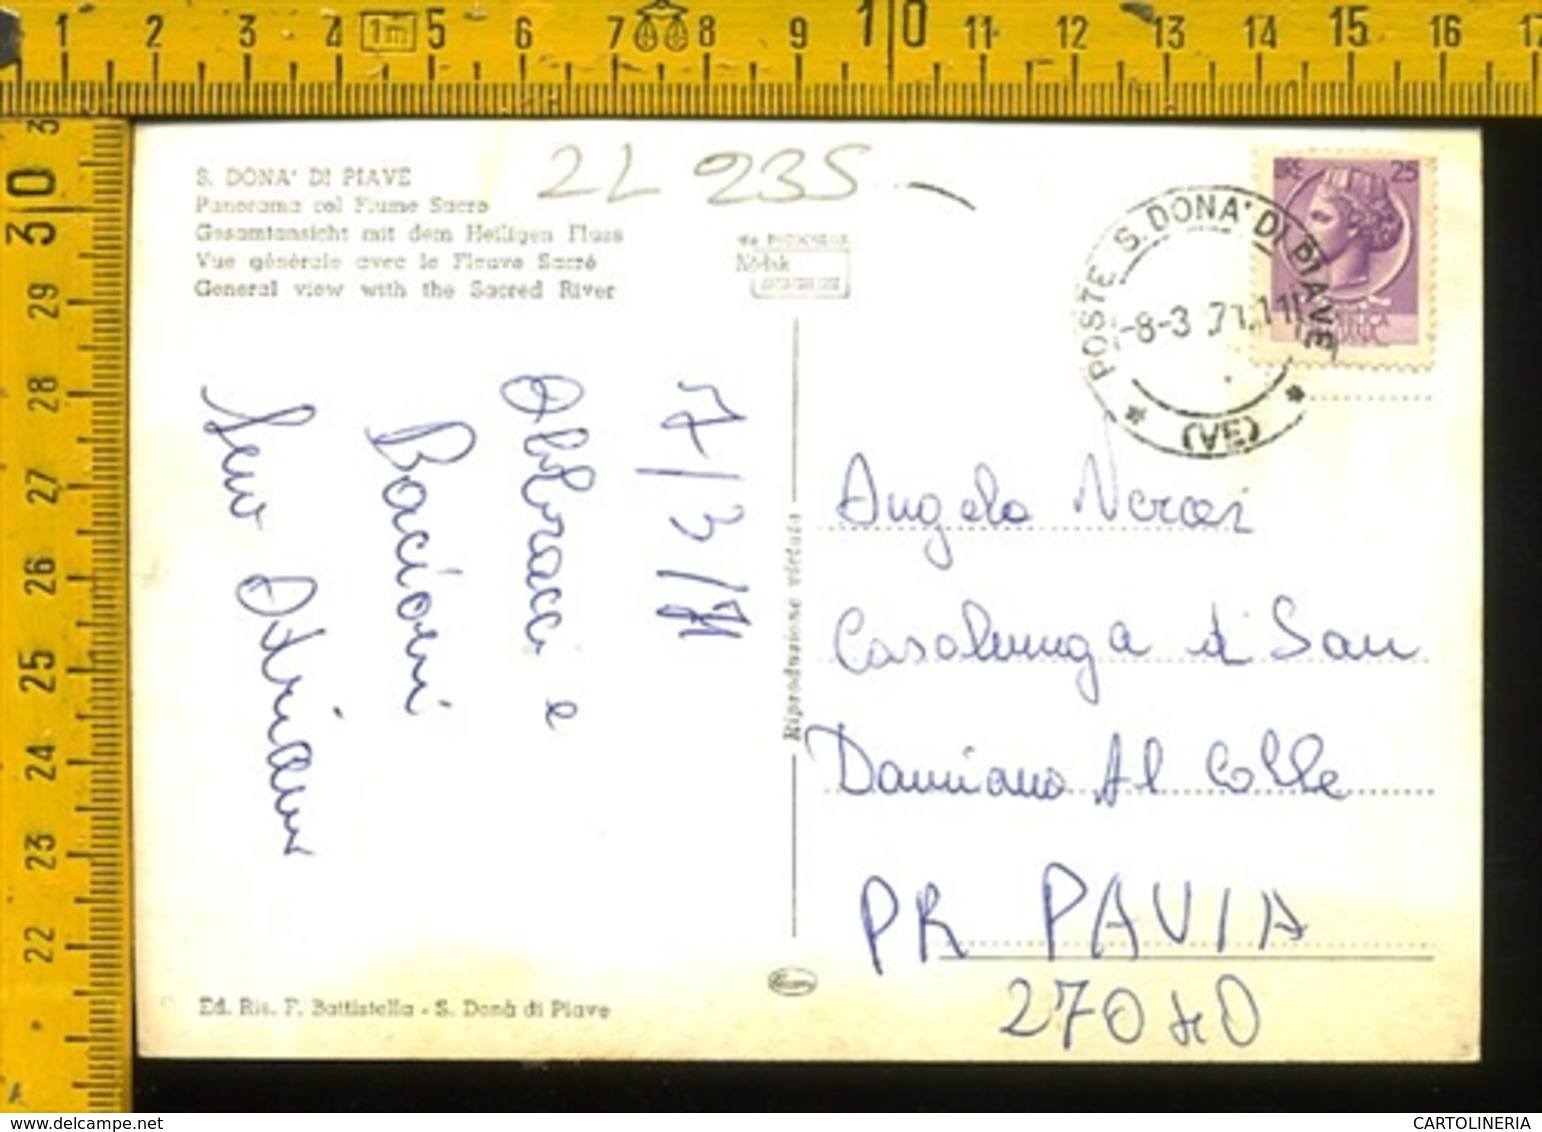 1 2 3 4 1m 5 6 7 8 9 10 11 12 13 14 15 16 17
30
29
28
27
26
25
24
23
22
S. DONA' DI PIAVE
Panorama col Fiume Sacro
Gesamtansicht mit dem Heiligen Fluss
Vue générale avec le Fleuve Sacré
General view with the Sacred River
2L 235
Kodak
25
POSTE S. DONA' DI PIAVE
-8-3 71.11
(VE)
7/3/71
Abbracci e
Bacioni
Riproduzione vietata
Angela
Casalunga di San
Damiano Al Colle
PR PAVIA
27040
Ed. Ris. F. Battistella - S. Donà di Piave
CARTOLINERIA